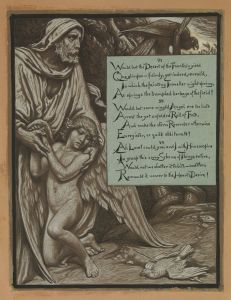 97
Would but the Desert of the Fountain yield
One glimpse—if dimly, yet indeed, reveal'd,
To which the fainting Traveller might spring,
As springs the trampled herbage of the field!
98
Would but some wingéd Angel ere too late
Arrest the yet unfolded Roll of Fate,
And make the stern Recorder otherwise
Enregister, or quite obliterate!
99
Ah Love! could you and I with Him conspire
To grasp this sorry Scheme of Things entire,
Would not we shatter it to bits—and then
Remould it nearer to the Heart's Desire!